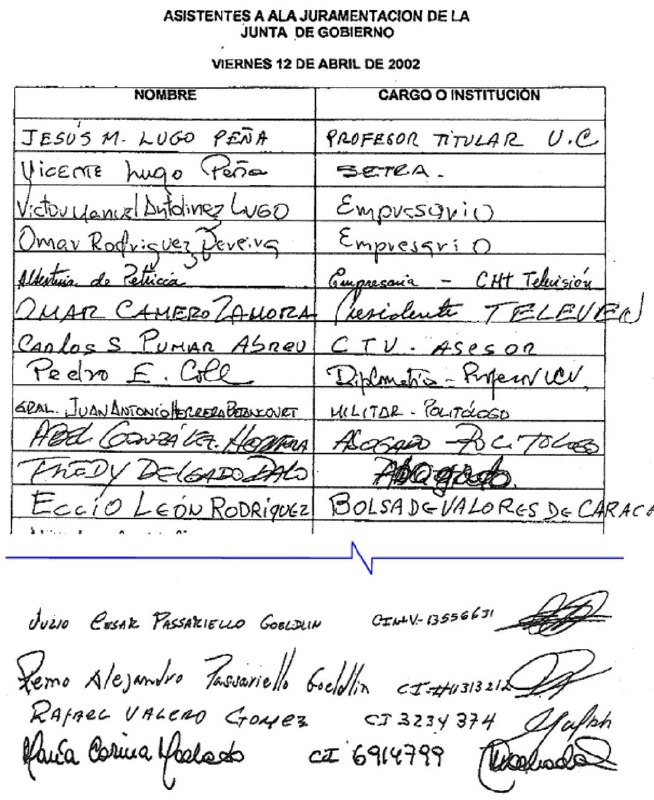 ASISTENTES A ALA JURAMENTACION DE LA
JUNTA DE GOBIERNO
VIERNES 12 DE ABRIL DE 2002
NOMBRE CARGO O INSTITUCIÓN
JESÚS M. LUGO PEÑA PROFESOR TITULAR U.C
Vicente Lugo Peña SETRA.
Victor Manuel Antolinez LUGO Empresario
Omar Rodriguez Pereira Empresario
Albertina de Petricca Empresaria - CMT Televisión
OMAR CAMERO ZAMORA Presidente TELEVEN
Carlos S PUMAR ABREU CTV. ASESOR
Pedro E. Coll Diplomático - Profesor UCV.
GRAL. JUAN ANTONIO HERRERA BETANCOURT MILITAR - POLITÓLOGO
ABEL GONZÁLEZ HERRERA ABOGADO POLITOLOGO
FREDY DELGADO Abogado.
ECCIO LEÓN RODRIGUEZ BOLSA DE VALORES DE CARACA
JULIO CESAR PASSARIELLO GOELDLIN CI#V-13556631
Remo Alejandro Passariello Goeldlin
RAFAEL VALERO GOMEZ CI 3234374
María Corina Machado CI 6914799